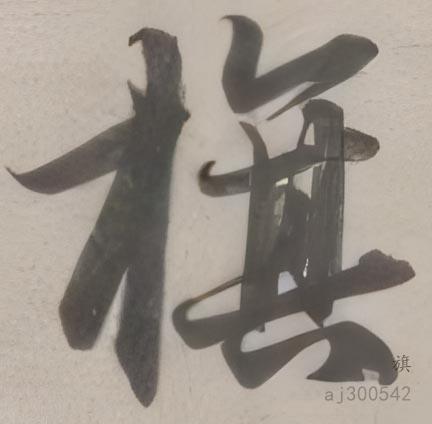 旗
旗
aj300542